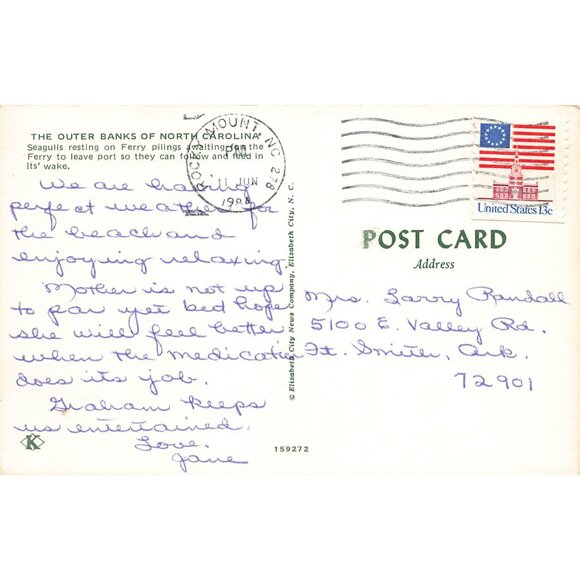 THE OUTER BANKS OF NORTH CAROLINA
Seagulls resting on Ferry pilings awaiting for the
Ferry to leave port so they can follow and feed in
its' wake.
We are having
perfect weather for
the beach and
enjoying relaxing.
Mother is not up
to par yet bed hope
she will feel better
when the medication
does its job.
Graham keeps
us entertained.
Love,
Jane
K
© Elizabeth City News Company, Elizabeth City, N. C.
159272
ROCKY MOUNT, NC 278
PM
11 JUN
1984
United States 13c
POST CARD
Address
Mrs. Larry Randall
5100 E. Valley Rd.
Ft. Smith, Ark.
72901